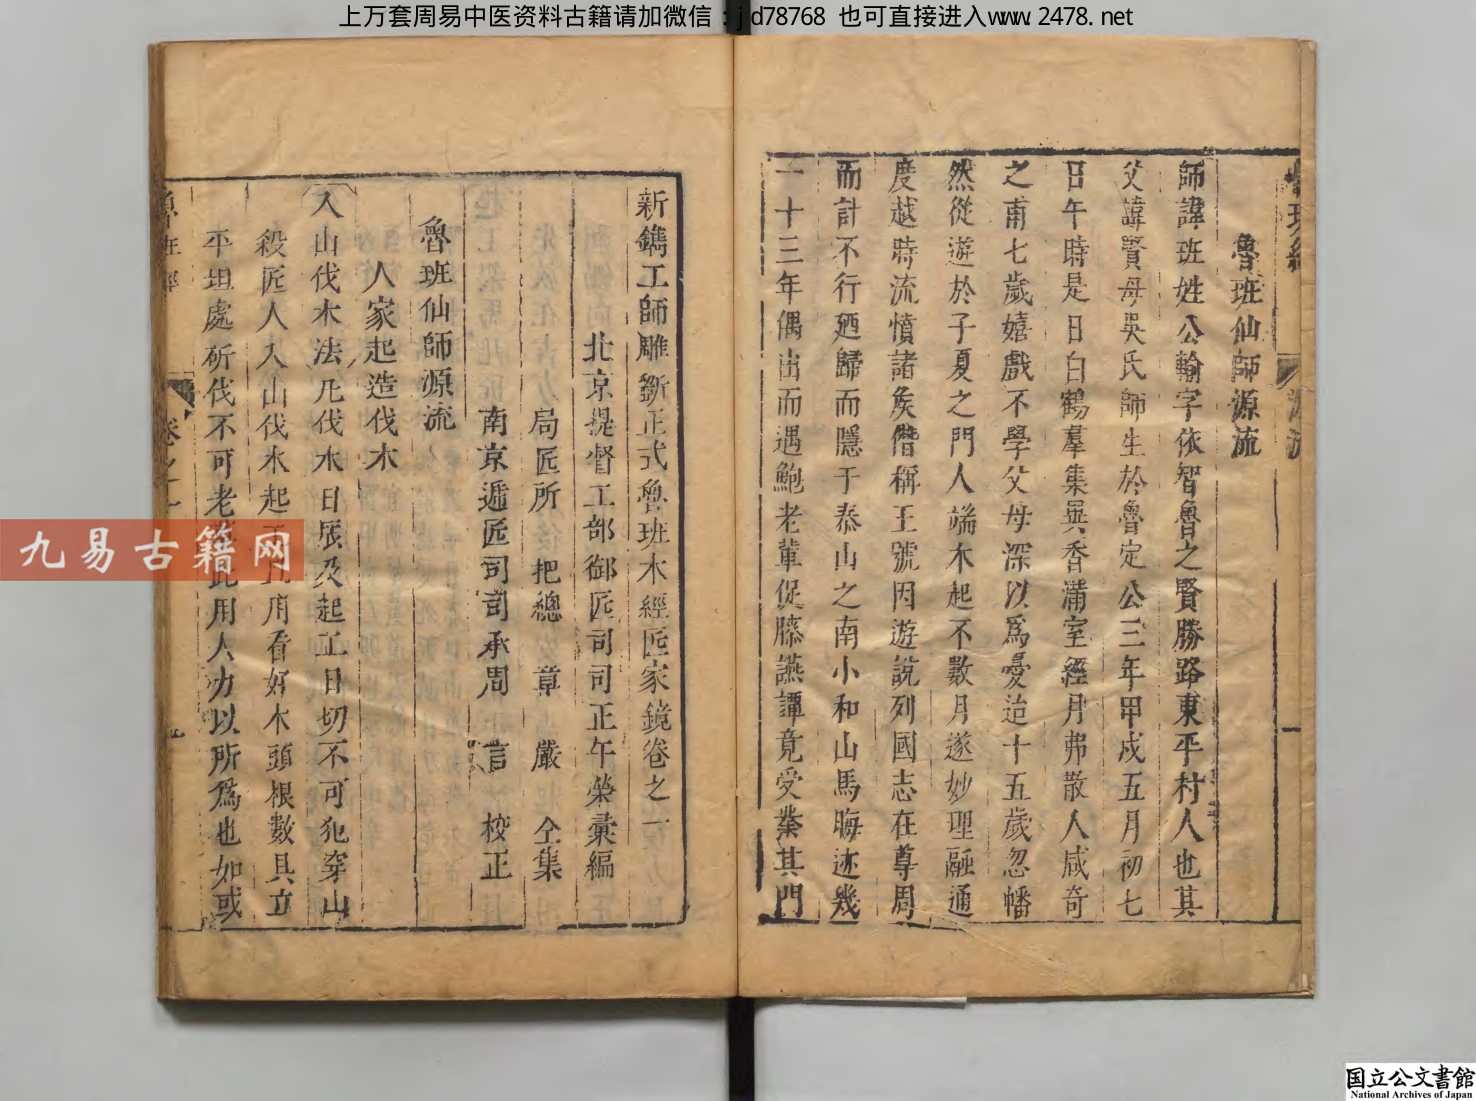 上万套周易中医资料古籍请加微信:jyd78768 也可直接进入www.2478.net
魯班仙師源流
師諱班姓公輸字依智魯之賢勝路東平村人也其
父諱賢母吳氏師生於魯定公三年甲戌五月初七
日午時是日白鶴羣集異香滿室經月弗散人咸奇
之甫七歲嬉戲不學父母深以爲憂迨十五歲忽幡
然從遊於子夏之門人端木起不數月遂妙理融通
度越時流憤諸矦僭稱王號因遊說列國志在尊周
而計不行廼歸而隱于泰山之南小和山焉晦迹幾
一十三年偶出而遇鮑老輩促膝讌譚竟受業其門
源流
一
新鐫工師雕斵正式魯班木經匠家鏡卷之一
北京提督工部御匠司司正午榮彙編
局匠所 把總 章 嚴 仝集
南京遞匠司司承周 言 校正
魯班仙師源流
人家起造伐木
入山伐木法凡伐木日辰及起工日切不可犯穿山
殺匠人入山伐木起工且用看好木頭根數具立
平坦處斫伐不可老草此用人力以所爲也如或
魯班經
卷之一
九易古籍网
国立公文書館
National Archives of Japan